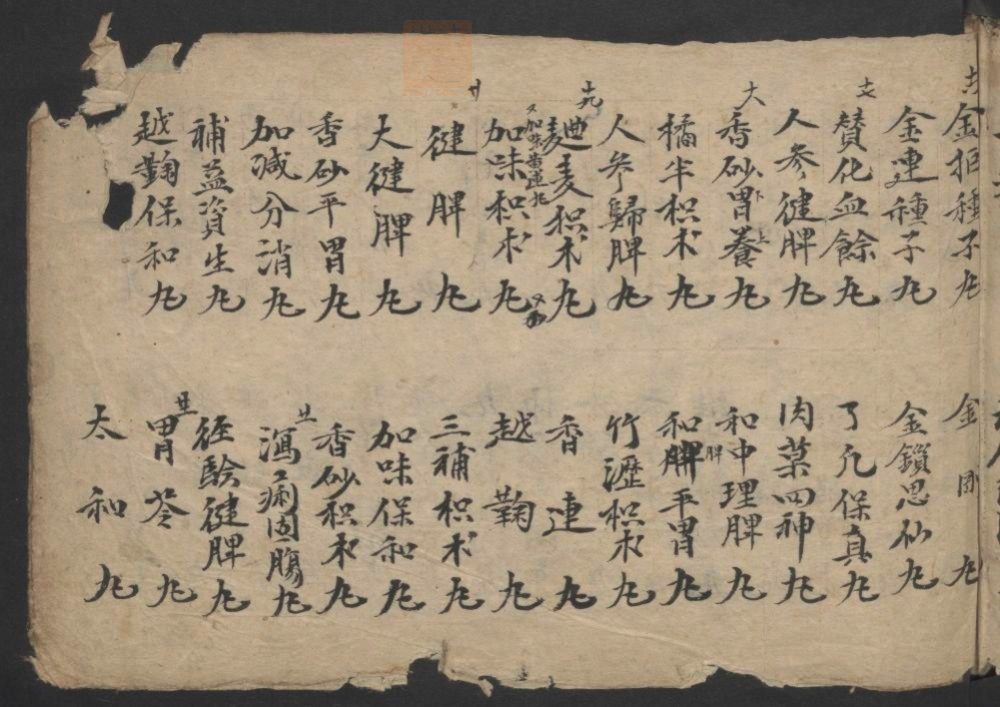 金拒種子丸
金連種子丸
贊化血餘丸
人參健脾丸
香砂胃養丸
橘半枳朮丸
人參歸脾丸
麯麦枳朮丸
加味枳朮丸
健脾丸
大健脾丸
香砂平胃丸
加减分消丸
補益資生丸
越鞠保和丸
金
丸
金鎖思仙丸
了凡保真丸
肉菓四神丸
和中理脾丸
和脾平胃丸
竹瀝枳朮丸
香連丸
越鞠丸
三補枳朮丸
加味保和丸
香砂枳朮丸
瀉痢固腸丸
經驗健脾丸
胃苓丸
太和丸